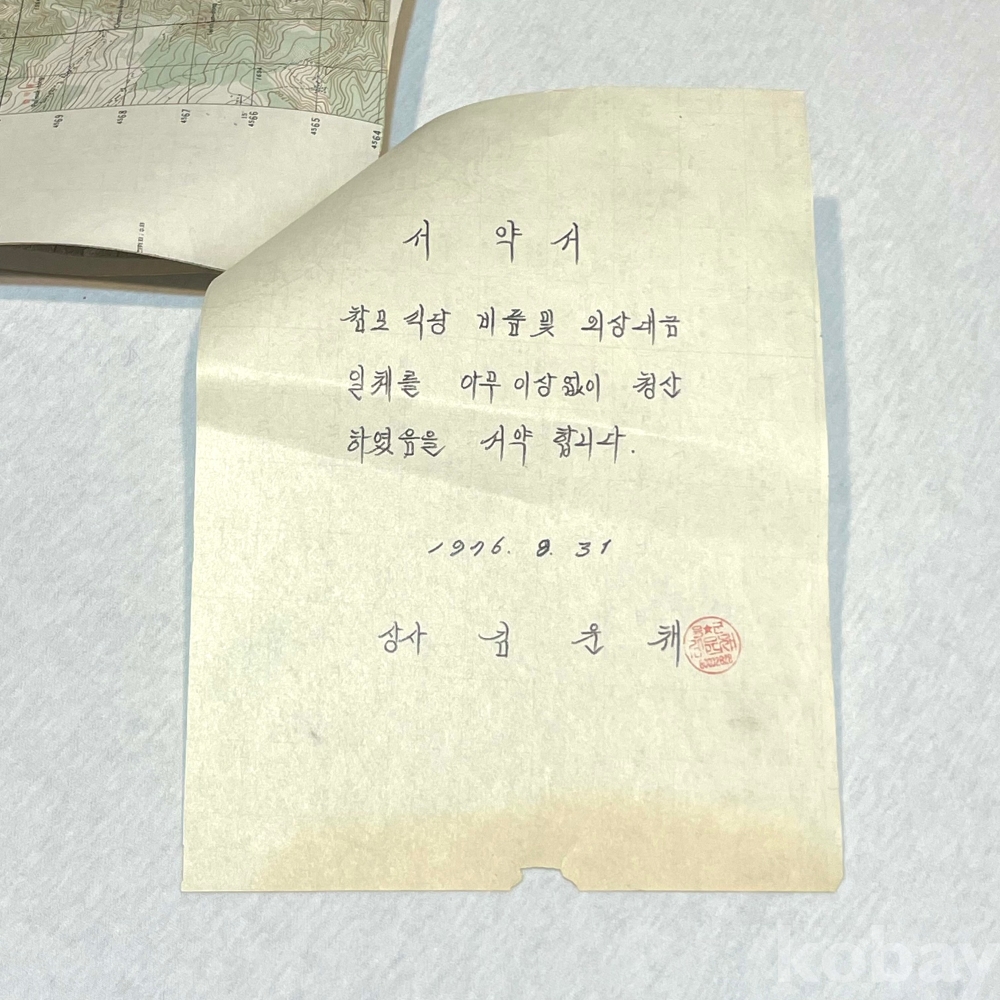 4569
4568
4567
4566
4565
4564
서 약 서
참모 식당 비품및 외상대금
일체를 아무 이상 없이 청산
하였음을 서약 합니다.
1976. 8. 31
상사 김 운 채
kobay